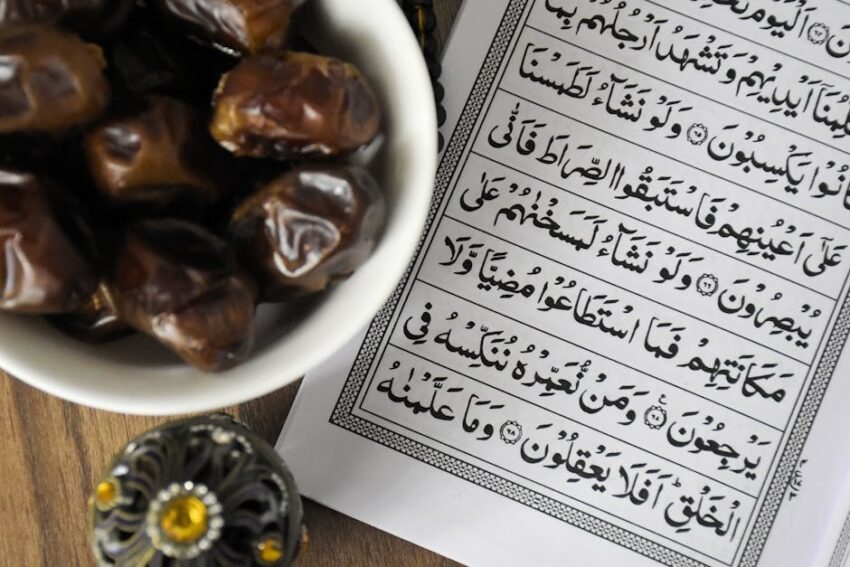 اَلْيَوْمَ
اَيْدِيْهِمْ وَتَشْهَدُ اَرْجُلُهُمْ بِمَا
كَانُوْا يَكْسِبُوْنَ ۝۶۵ وَلَوْ نَشَآءُ لَطَمَسْنَا
عَلٰۤى اَعْيُنِهِمْ فَاسْتَبَقُوا الصِّرَاطَ فَاَنّٰى
يُبْصِرُوْنَ ۝۶۶ وَلَوْ نَشَآءُ لَمَسَخْنٰهُمْ عَلٰى
مَكَانَتِهِمْ فَمَا اسْتَطَاعُوْا مُضِيًّا وَّلَا
يَرْجِعُوْنَ ۝۶۷ وَمَنْ نُّعَمِّرْهُ نُنَكِّسْهُ فِى
الْخَلْقِؕ اَفَلَا يَعْقِلُوْنَ ۝۶۸ وَمَا عَلَّمْنٰهُ